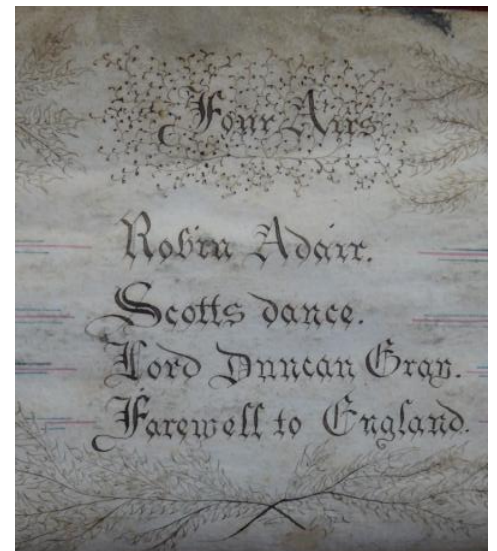 Four Airs
Robin Adair.
Scotts dance.
Lord Duncan Gray.
Farewell to England.